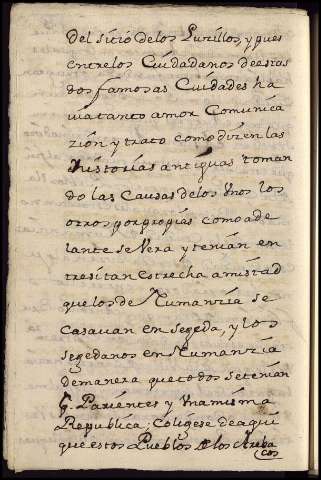 del sitio de los Lurillos, y pues
entrelos Cuidadanos de estas
dos famosas Cuidades ha
via tanto amor Comunica
zión y trato como dizen las
historias antiguas toman
do las Causas de los Vnos los
otros por propias como ade
lante se Vera y tenian en
tresi tan estrecha amistad
que los de Numanzia se
Casauan en segeda, y los
segedanos en Numanzia
de manera que todos se tenian
p. Parientes y Vna misma
Republica; Coligese de aqui
que estos Pueblos de los Areba
cos